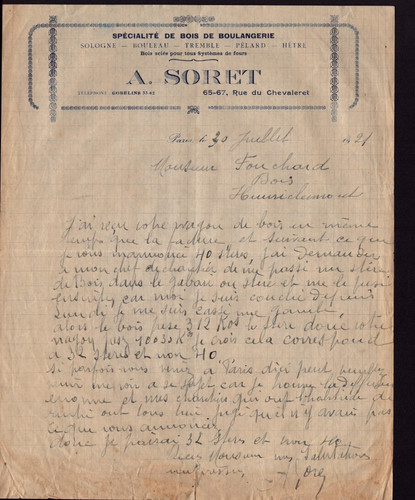 SPÉCIALITÉ DE BOIS DE BOULANGERIE
SOLOGNE — BOULEAU — TREMBLE — PELARD — HÊTRE
Bois sciés pour tous Systèmes de fours
A. SORET
TÉLÉPHONE: GOBELINS
65-67, Rue du Chevaleret
Paris, le 30 Juillet 1921
Monsieur Fouchard
Bois
Henrichemont
J'ai reçu votre wagon de bois en même
temps que la facture, et suivant ce que
vous m'annoncé 40 stères, j'ai demander
a mon chef de chantier de me passé un stère
de Bois dans le gabari ou stère et me le pesé
ensuite, car moi je suis couché depuis
Lundi je me suis cassé une jambe
alors le bois pese 312 Kos le stère donc votre
wagon pese 10030 K je crois cela correspond
a 32 stères et non 40.
si parfois vous venez a Paris d'ici peut
venir me voir a ce sujet car je trouve la différence
enorme et mes chantier qui ont l'habitude
ont tous jugé qu'il n'y avais pas
ce que vous annoncez
Donc je paierai 32 stères et non 40
Monsieur mes Salutations
empressées
Soret